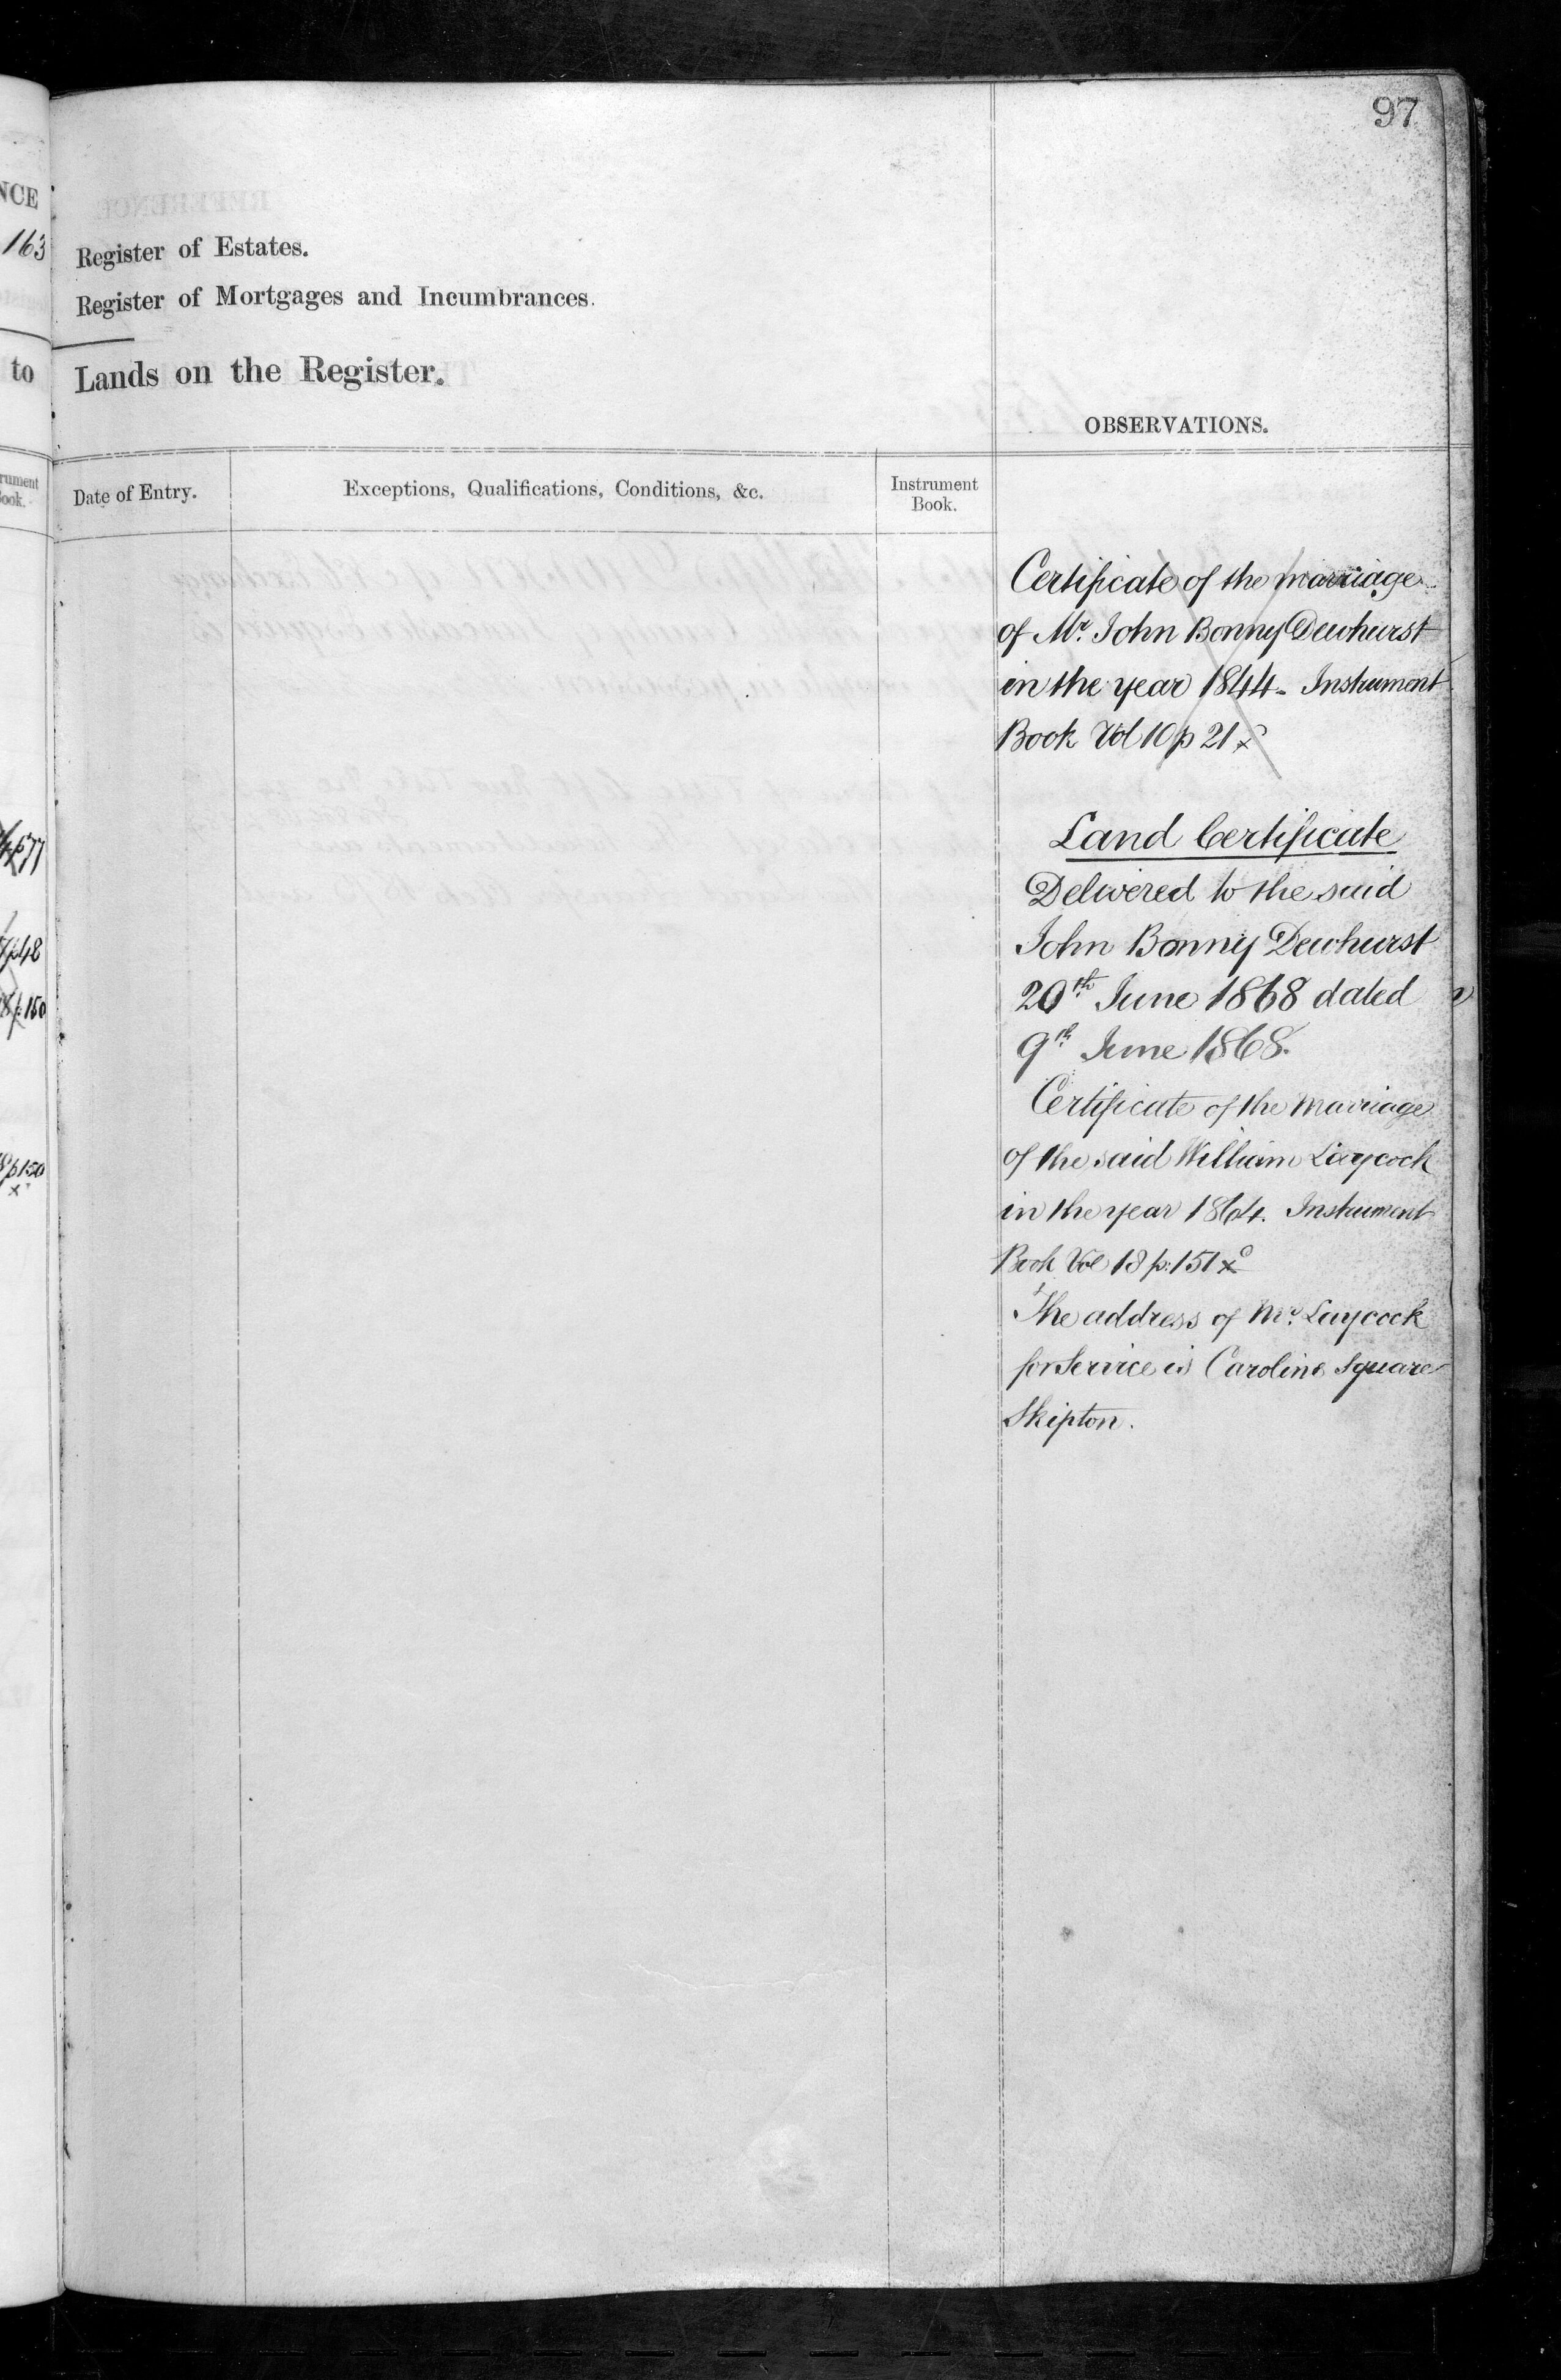 97
NCE
163
Register of Estates.
Register of Mortgages and Incumbrances.
to
Lands on the Register.
OBSERVATIONS.
rument
Book.
Date of Entry.
Exceptions, Qualifications, Conditions, &c.
Instrument
Book.
Certificate of the marriage
of Mr. John Bonny Dewhurst
in the year 1844. Instrument
Book Vol 10 p 21 x
Land Certificate
Delivered to the said
John Bonny Dewhurst
20th June 1868 dated
9th June 1868.
Certificate of the marriage
of the said William Laycock
in the year 1864. Instrument
Book Vol 18 p. 151 x
The address of Mr. Laycock
for Service is Caroline Square
Skipton.
p 77
p 48
p. 150
p 150
x